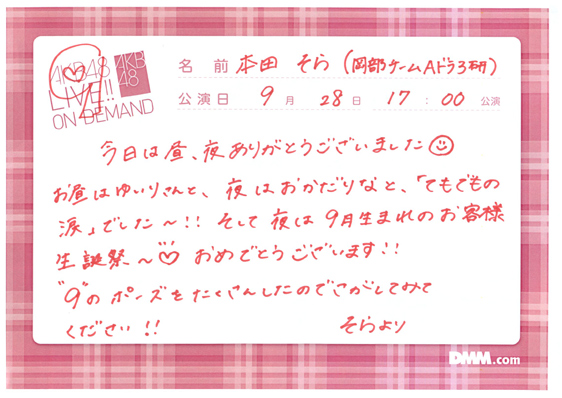 AKB48
LIVE!!
ON DEMAND
AKB
48
名 前 本田 そら (岡部チームAドラ3研)
公演日 9月 28日 17:00 公演
今日は昼、夜ありがとうございました
お昼はゆいりさんと、夜はおかだりなと、「てもでもの
涙」でした〜!! そして夜は9月生まれのお客様
生誕祭〜♡ おめでとうございます!!
"9"のポーズをたくさんしたのでさがしてみて
ください!! そらより
DMM.com